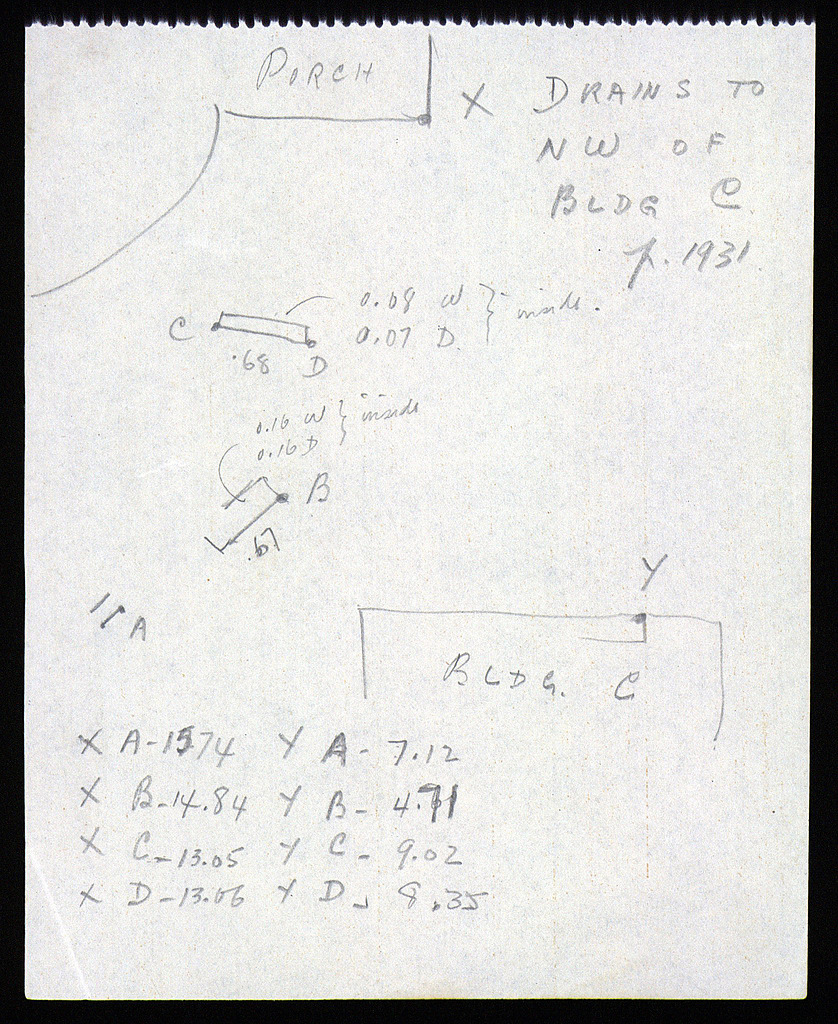 PORCH
X DRAINS TO
NW OF
BLDG C
p. 1931
C 0.08 W } inside.
0.07 D
.68 D
0.16 W } inside
0.16 D
B
.67
Y
A
BLDG. C
X A-1574 Y A- 7.12
X B-14.84 Y B- 4.71
X C-13.05 Y C- 9.02
X D-13.06 Y D- 8.35